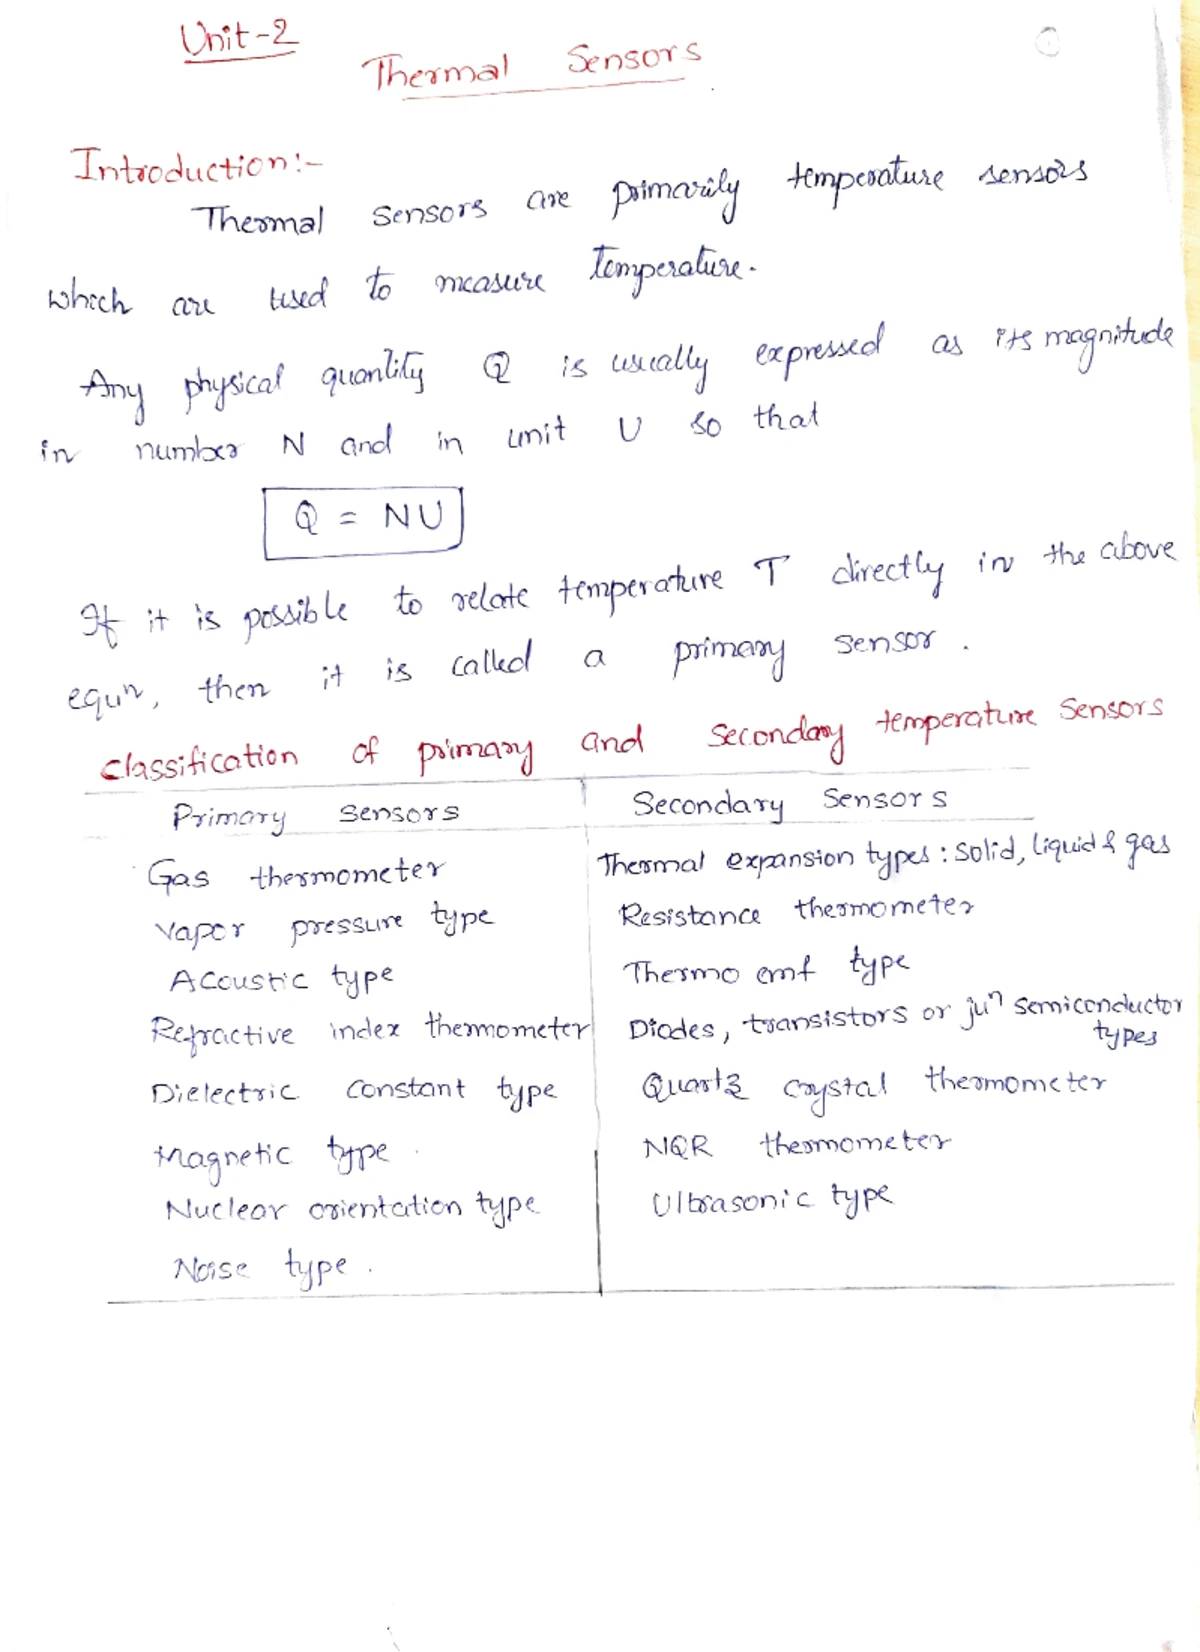 Unit-2
Thermal Sensors
Introduction:-
Thermal sensors are primarily temperature sensors
which are used to measure temperature.
Any physical quantity Q is usually expressed as its magnitude
in number N and in unit U so that
Q = NU
If it is possible to relate temperature T directly in the above
equⁿ, then it is called a primary sensor.
Classification of primary and Secondary temperature Sensors
Primary sensors Secondary Sensors
Gas thermometer Thermal expansion types: Solid, liquid & gas
Vapor pressure type Resistance thermometer
Acoustic type Thermo emf type
Refractive index thermometer Diodes, transistors or juⁿ semiconductor types
Dielectric constant type Quartz crystal thermometer
Magnetic type. NQR thermometer
Nuclear orientation type Ultrasonic type
Noise type.